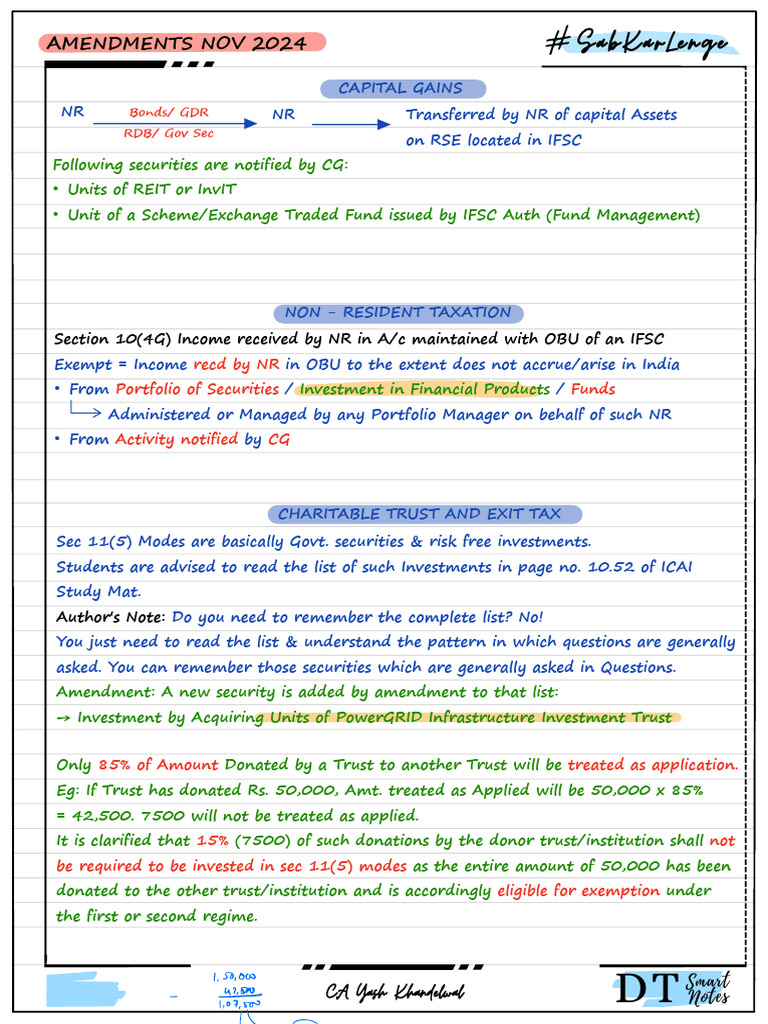 AMENDMENTS NOV 2024
#SabKarLenge
CAPITAL GAINS
NR Bonds/ GDR NR Transferred by NR of capital Assets
RDB/ Gov Sec on RSE located in IFSC
Following securities are notified by CG:
• Units of REIT or InvIT
• Unit of a Scheme/Exchange Traded Fund issued by IFSC Auth (Fund Management)
NON - RESIDENT TAXATION
Section 10(4G) Income received by NR in A/c maintained with OBU of an IFSC
Exempt = Income recd by NR in OBU to the extent does not accrue/arise in India
• From Portfolio of Securities / Investment in Financial Products / Funds
Administered or Managed by any Portfolio Manager on behalf of such NR
• From Activity notified by CG
CHARITABLE TRUST AND EXIT TAX
Sec 11(5) Modes are basically Govt. securities & risk free investments.
Students are advised to read the list of such Investments in page no. 10.52 of ICAI
Study Mat.
Author's Note: Do you need to remember the complete list? No!
You just need to read the list & understand the pattern in which questions are generally
asked. You can remember those securities which are generally asked in Questions.
Amendment: A new security is added by amendment to that list:
→ Investment by Acquiring Units of PowerGRID Infrastructure Investment Trust
Only 85% of Amount Donated by a Trust to another Trust will be treated as application.
Eg: If Trust has donated Rs. 50,000, Amt. treated as Applied will be 50,000 x 85%
= 42,500. 7500 will not be treated as applied.
It is clarified that 15% (7500) of such donations by the donor trust/institution shall not
be required to be invested in sec 11(5) modes as the entire amount of 50,000 has been
donated to the other trust/institution and is accordingly eligible for exemption under
the first or second regime.
1,50,000
- 42,500
1,07,500
CA Yash Khandelwal
DT Smart Notes